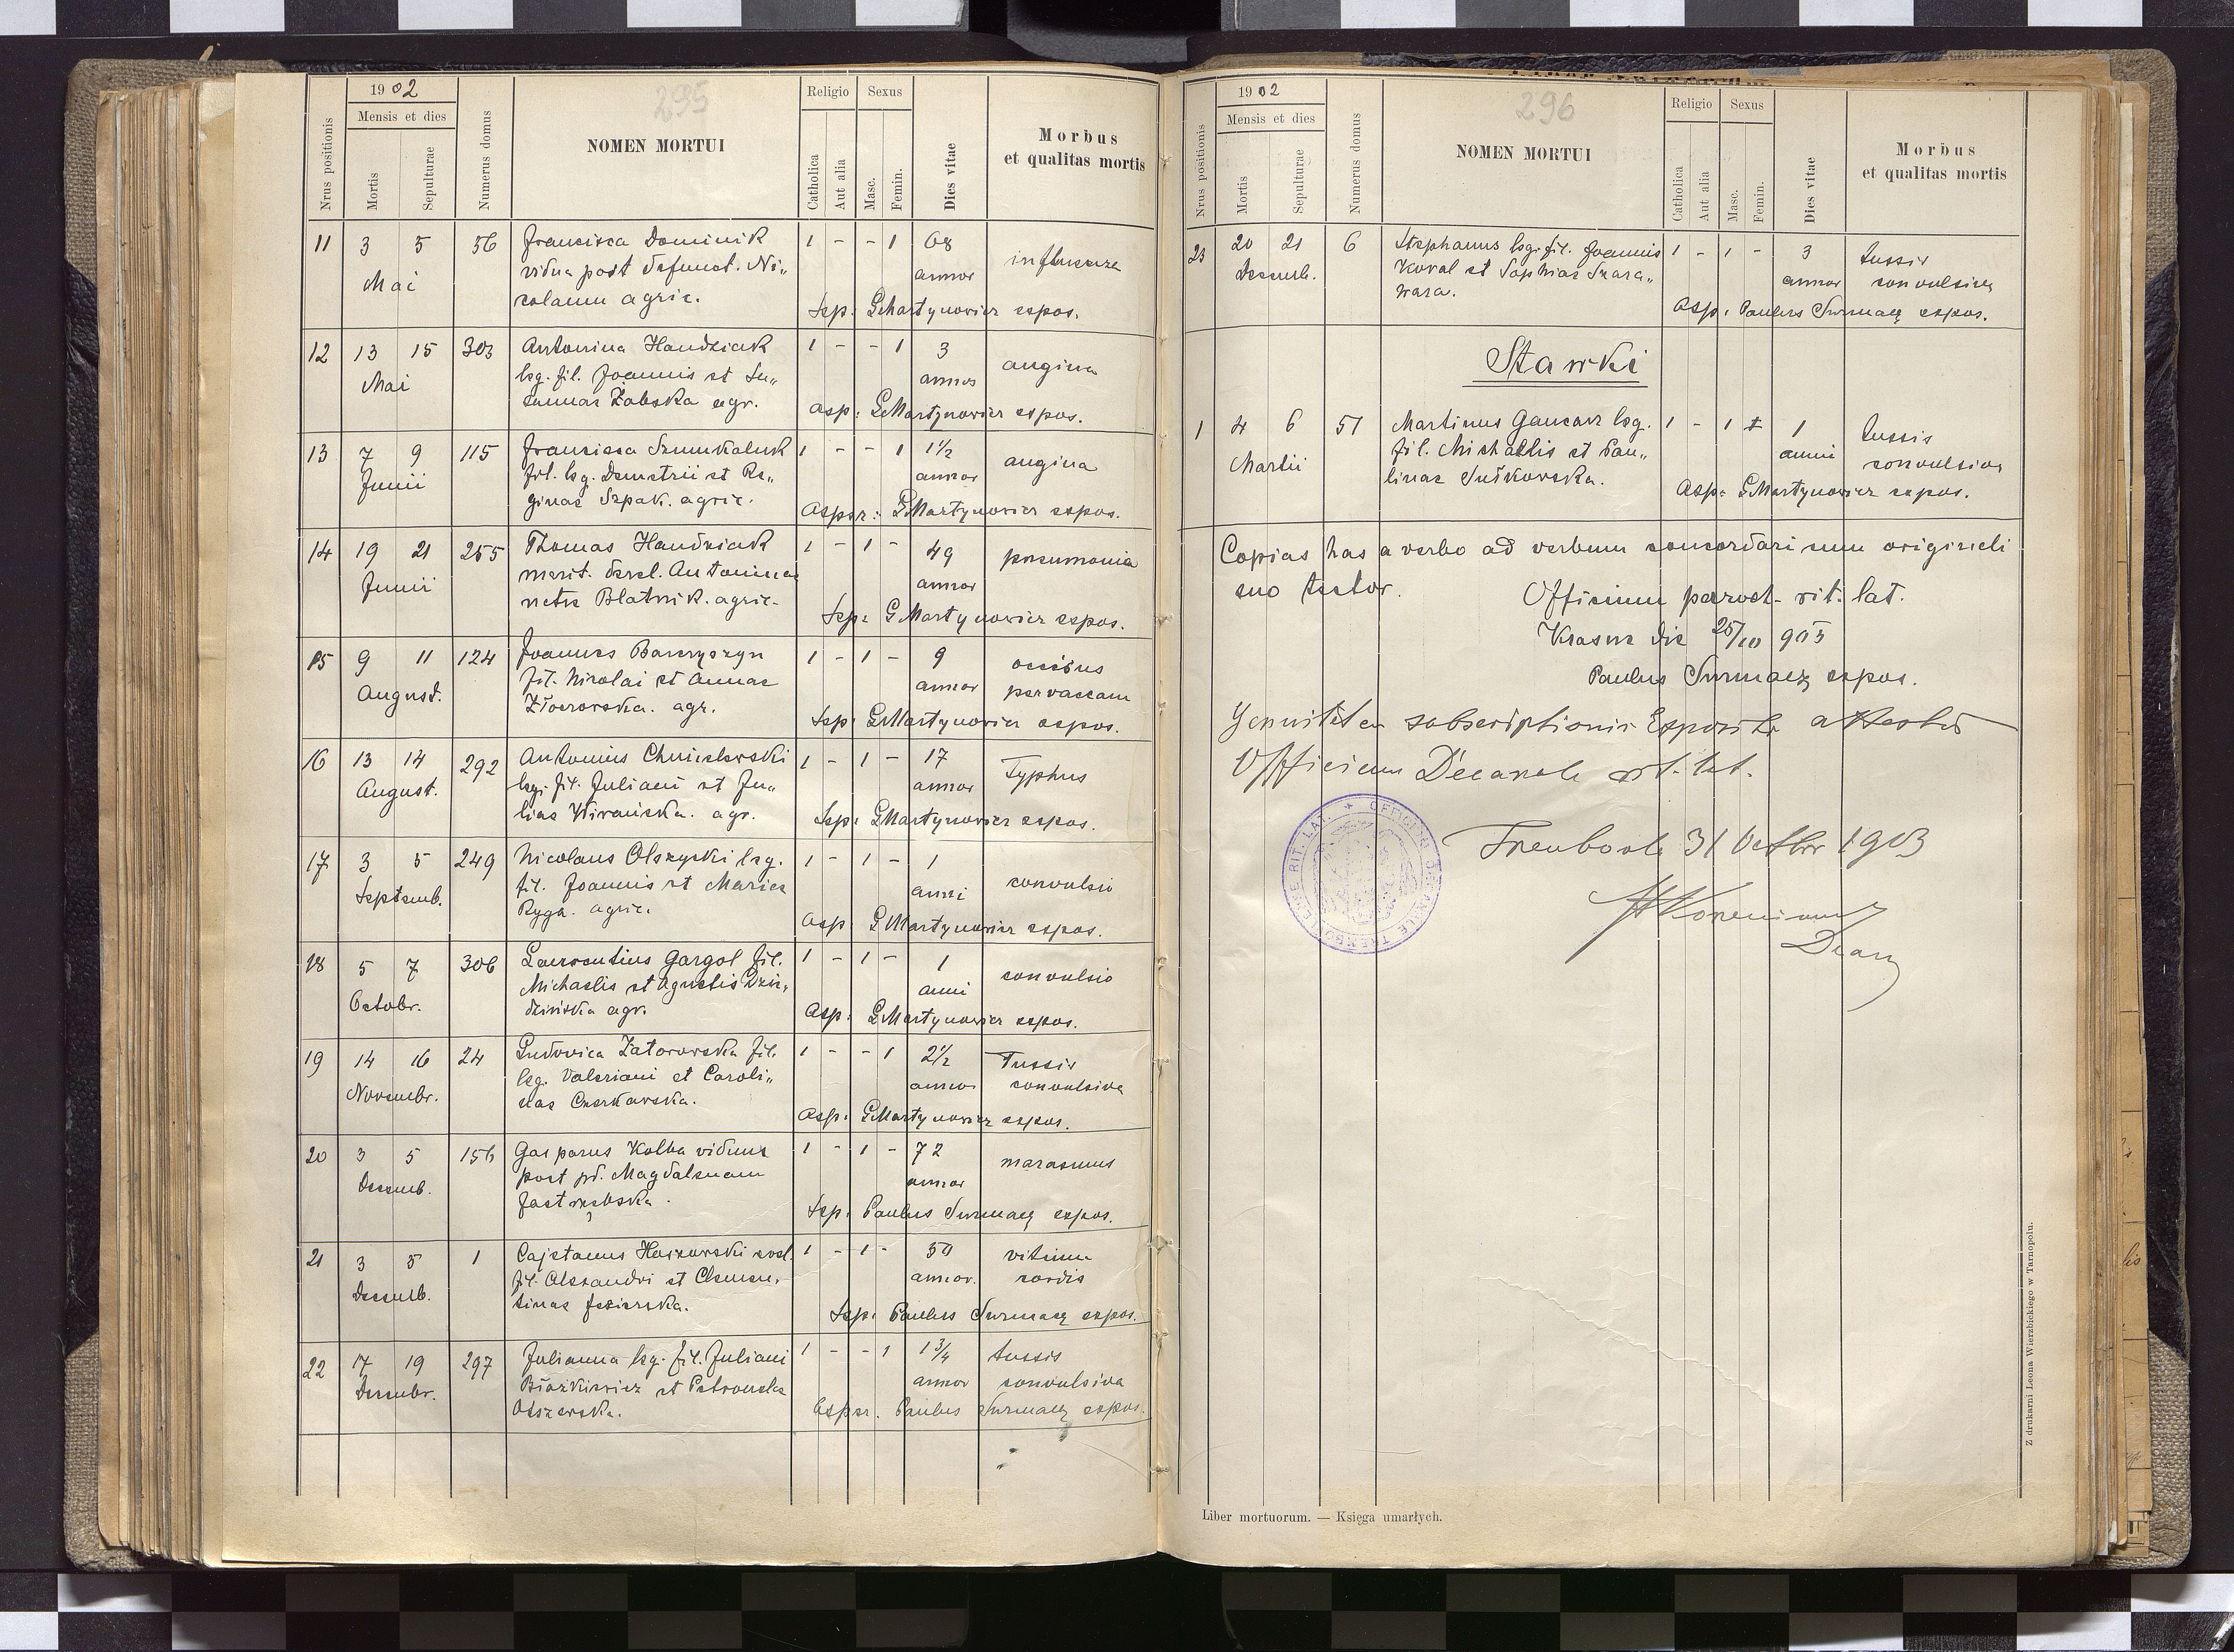 295
1902
Mensis et dies
Religio
Sexus
Nrus positionis
Mortis
Sepulturae
Numerus domus
NOMEN MORTUI
Catholica
Aut alia
Masc.
Femin.
Dies vitae
Morbus
et qualitas mortis
11 3 5 56 Francisca Dominik 1 - - 1 68
Mai vidua post defunct. Ni„ annor influenza
colaum agric. Sep: GMartynowicz expos.
12 13 15 303 Antonina Handziak 1 - - 1 3
Mai leg. fil. Joannis et Su„ annos angina
sannae Żabska agr. Asp: GMartynowicz expos.
13 7 9 115 Francisca Szumkaluk 1 - - 1 1½
Junii fil. leg. Demetrii et Re„ annor angina
ginae Szpak. agric. Asper: GMartynowicz expos.
14 19 21 255 Thomas Handziak 1 - 1 - 49 pneumonia
Junii marit. derel. Antoninae annor
natu Blatnik. agric. Sep: GMartynowicz expos.
15 9 11 124 Joannes 1 - 1 - 9 occisus
August. fil. Nicolai et Annae annor per vaccam
agr. Sep: GMartynowicz expos.
16 13 14 292 Antonius Chmielewski 1 - 1 - 17 Typhus
August. leg. fil. Juliani et Ju„ annor
liae Wirańska. agr. Sep: GMartynowicz expos.
17 3 5 249 Nicolaus Olszycki leg. 1 - 1 - 1
Septemb. fil. Joannis et Mariae anni convulsio
Ryga. agric. Asp GMartynowicz expos.
18 5 7 306 Laurentius Gargol fil. 1 - 1 - 1 convulsio
Octobr. Michaelis et Agnetis Dzie„ anni
dzińska agr. Asp: GMartynowicz expos.
19 14 16 24 Ludovica Zatorowska fil. 1 - - 1 2½ Tussis
Novembr. leg. Valeriani et Caroli„ annor convulsiva
nae Czerkawska. Asp: GMartynowicz expos.
20 3 5 156 Gasparus Kolba viduus 1 - 1 - 72 marasmus
Decemb. post pd. Magdalenam annor
Jastrzębska. Sep: Paulus Surmacz expos.
21 3 5 1 Cajetanus 1 - 1 - 50 vitium
Decemb. fil. Alexandri et Clemen„ annor. cordis
tinae Jezierska. Sep: Paulus Surmacz expos.
22 17 19 297 Julianna leg. fil. Juliani 1 - - 1 1¾ tussis
Decembr. Błażkiewicz et Petronela annor convulsiva
Olszewska. Asper. Paulus Surmacz expos.
296
1902
Mensis et dies
Religio
Sexus
Nrus positionis
Mortis
Sepulturae
Numerus domus
NOMEN MORTUI
Catholica
Aut alia
Masc.
Femin.
Dies vitae
Morbus
et qualitas mortis
23 20 21 6 Stephanus leg. fil. Joannis 1 - 1 - 3 tussis
Decemb. Koval et Sophiae Szara„ annor convulsiva
wara. Asp: Paulus Surmacz expos.
Stawki
1 4 6 51 Martinus Gancarz leg. 1 - 1 1 tussis
Martii fil. Michaelis et Pau„ anni convulsiva
linae Suśkowska. Asp: GMartynowicz expos.
Copias has a verbo ad verbum concordari cum originali
suo testor.
Officium paroch. rit. lat.
Krasne die 25/10 903
Paulus Surmacz expos.
Genuitatem subscriptionis Expositi attestor
Officium Decanale rit. lat.
OFFICIUM DECANALE TREMBOVLENSE RIT. LAT.
Trembowla 31 Octbr 1903
Dean
Liber mortuorum. — Księga umarłych.
Z drukarni Leona Wierzbickiego w Tarnopolu.